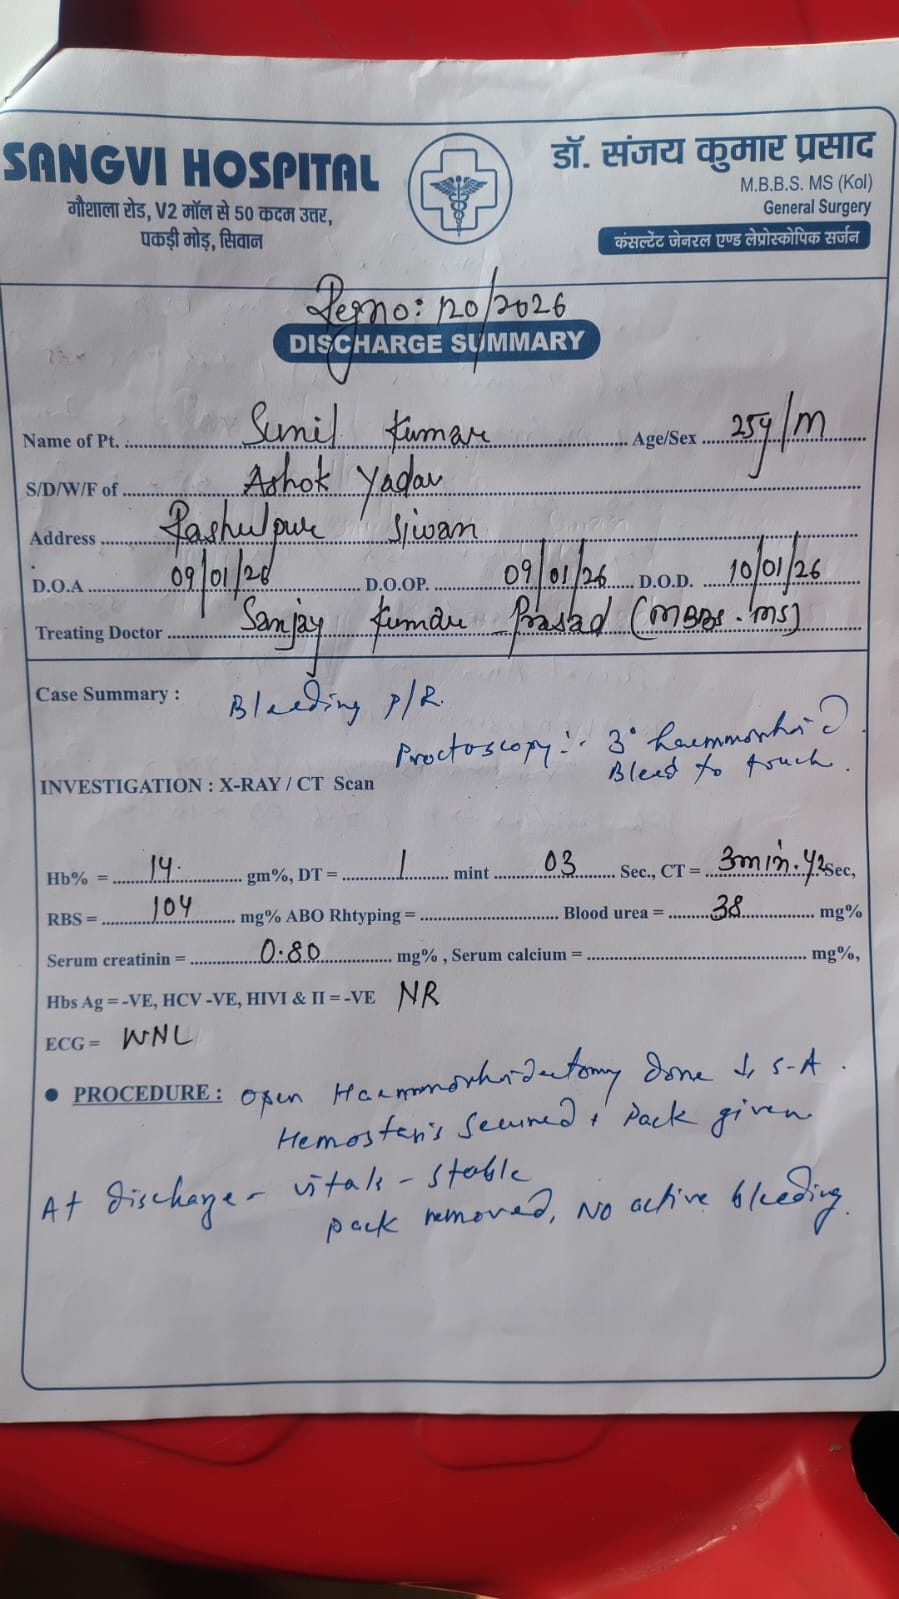 SANGVI HOSPITAL
गौशाला रोड, V2 मॉल से 50 कदम उत्तर,
पकड़ी मोड़, सिवान
डॉ. संजय कुमार प्रसाद
M.B.B.S. MS (Kol)
General Surgery
कंसल्टेंट जेनरल एण्ड लेप्रोस्कोपिक सर्जन
Regno: 120/2026
DISCHARGE SUMMARY
Name of Pt. Sunil Kumar Age/Sex 25y/M
S/D/W/F of Ashok Yadav
Address Rashulpur Siwan
D.O.A 09/01/26 D.O.OP. 09/01/26 D.O.D. 10/01/26
Treating Doctor Sanjay Kumar Prasad (MBBS. MS)
Case Summary : Bleeding P/R.
Proctoscopy :- 3° haemmorhoid
Bleed to touch.
INVESTIGATION : X-RAY / CT Scan
Hb% = 14. gm%, DT = 1 mint 03 Sec., CT = 3min. 42 Sec,
RBS = 104 mg% ABO Rhtyping = Blood urea = 38 mg%
Serum creatinin = 0.80 mg% , Serum calcium = mg%,
Hbs Ag = -VE, HCV -VE, HIVI & II = -VE NR
ECG = WNL
• PROCEDURE : Open Haemmorhoidectomy done S-A.
Hemostasis secured + Pack given
At discharge - vitals - stable
pack removed, No active bleeding.